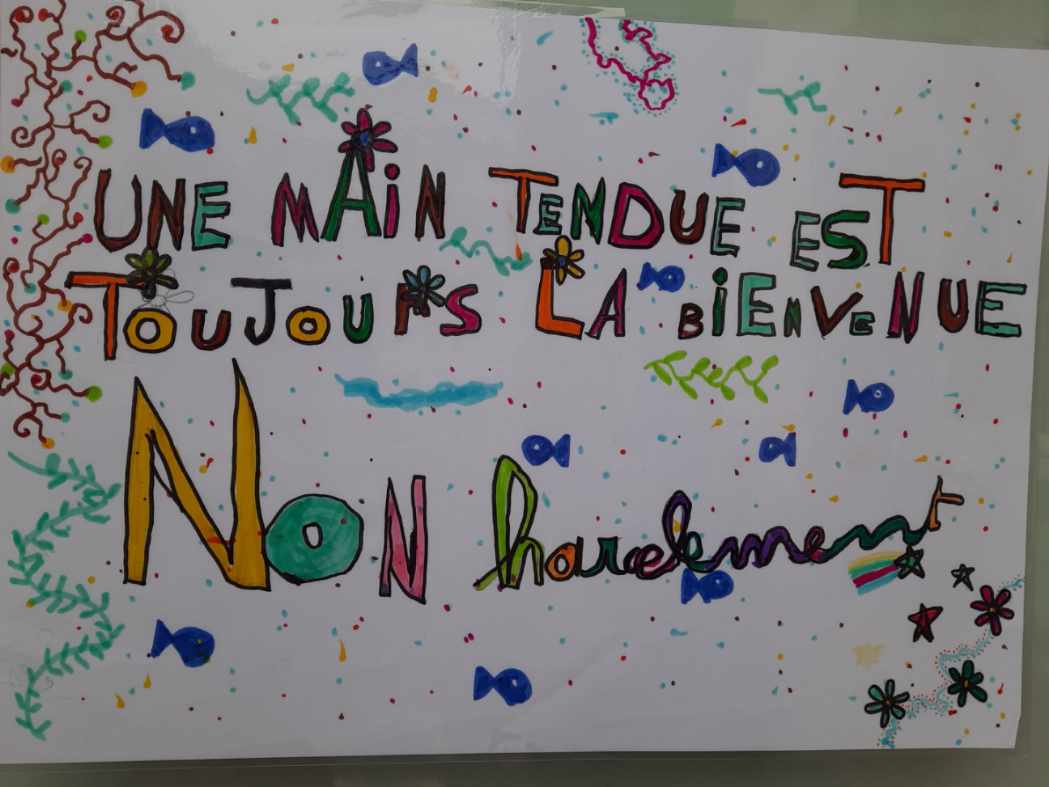 UNE MAiN TENDUE EST
TOUJOURS LA BiENVENUE
NON harcelement